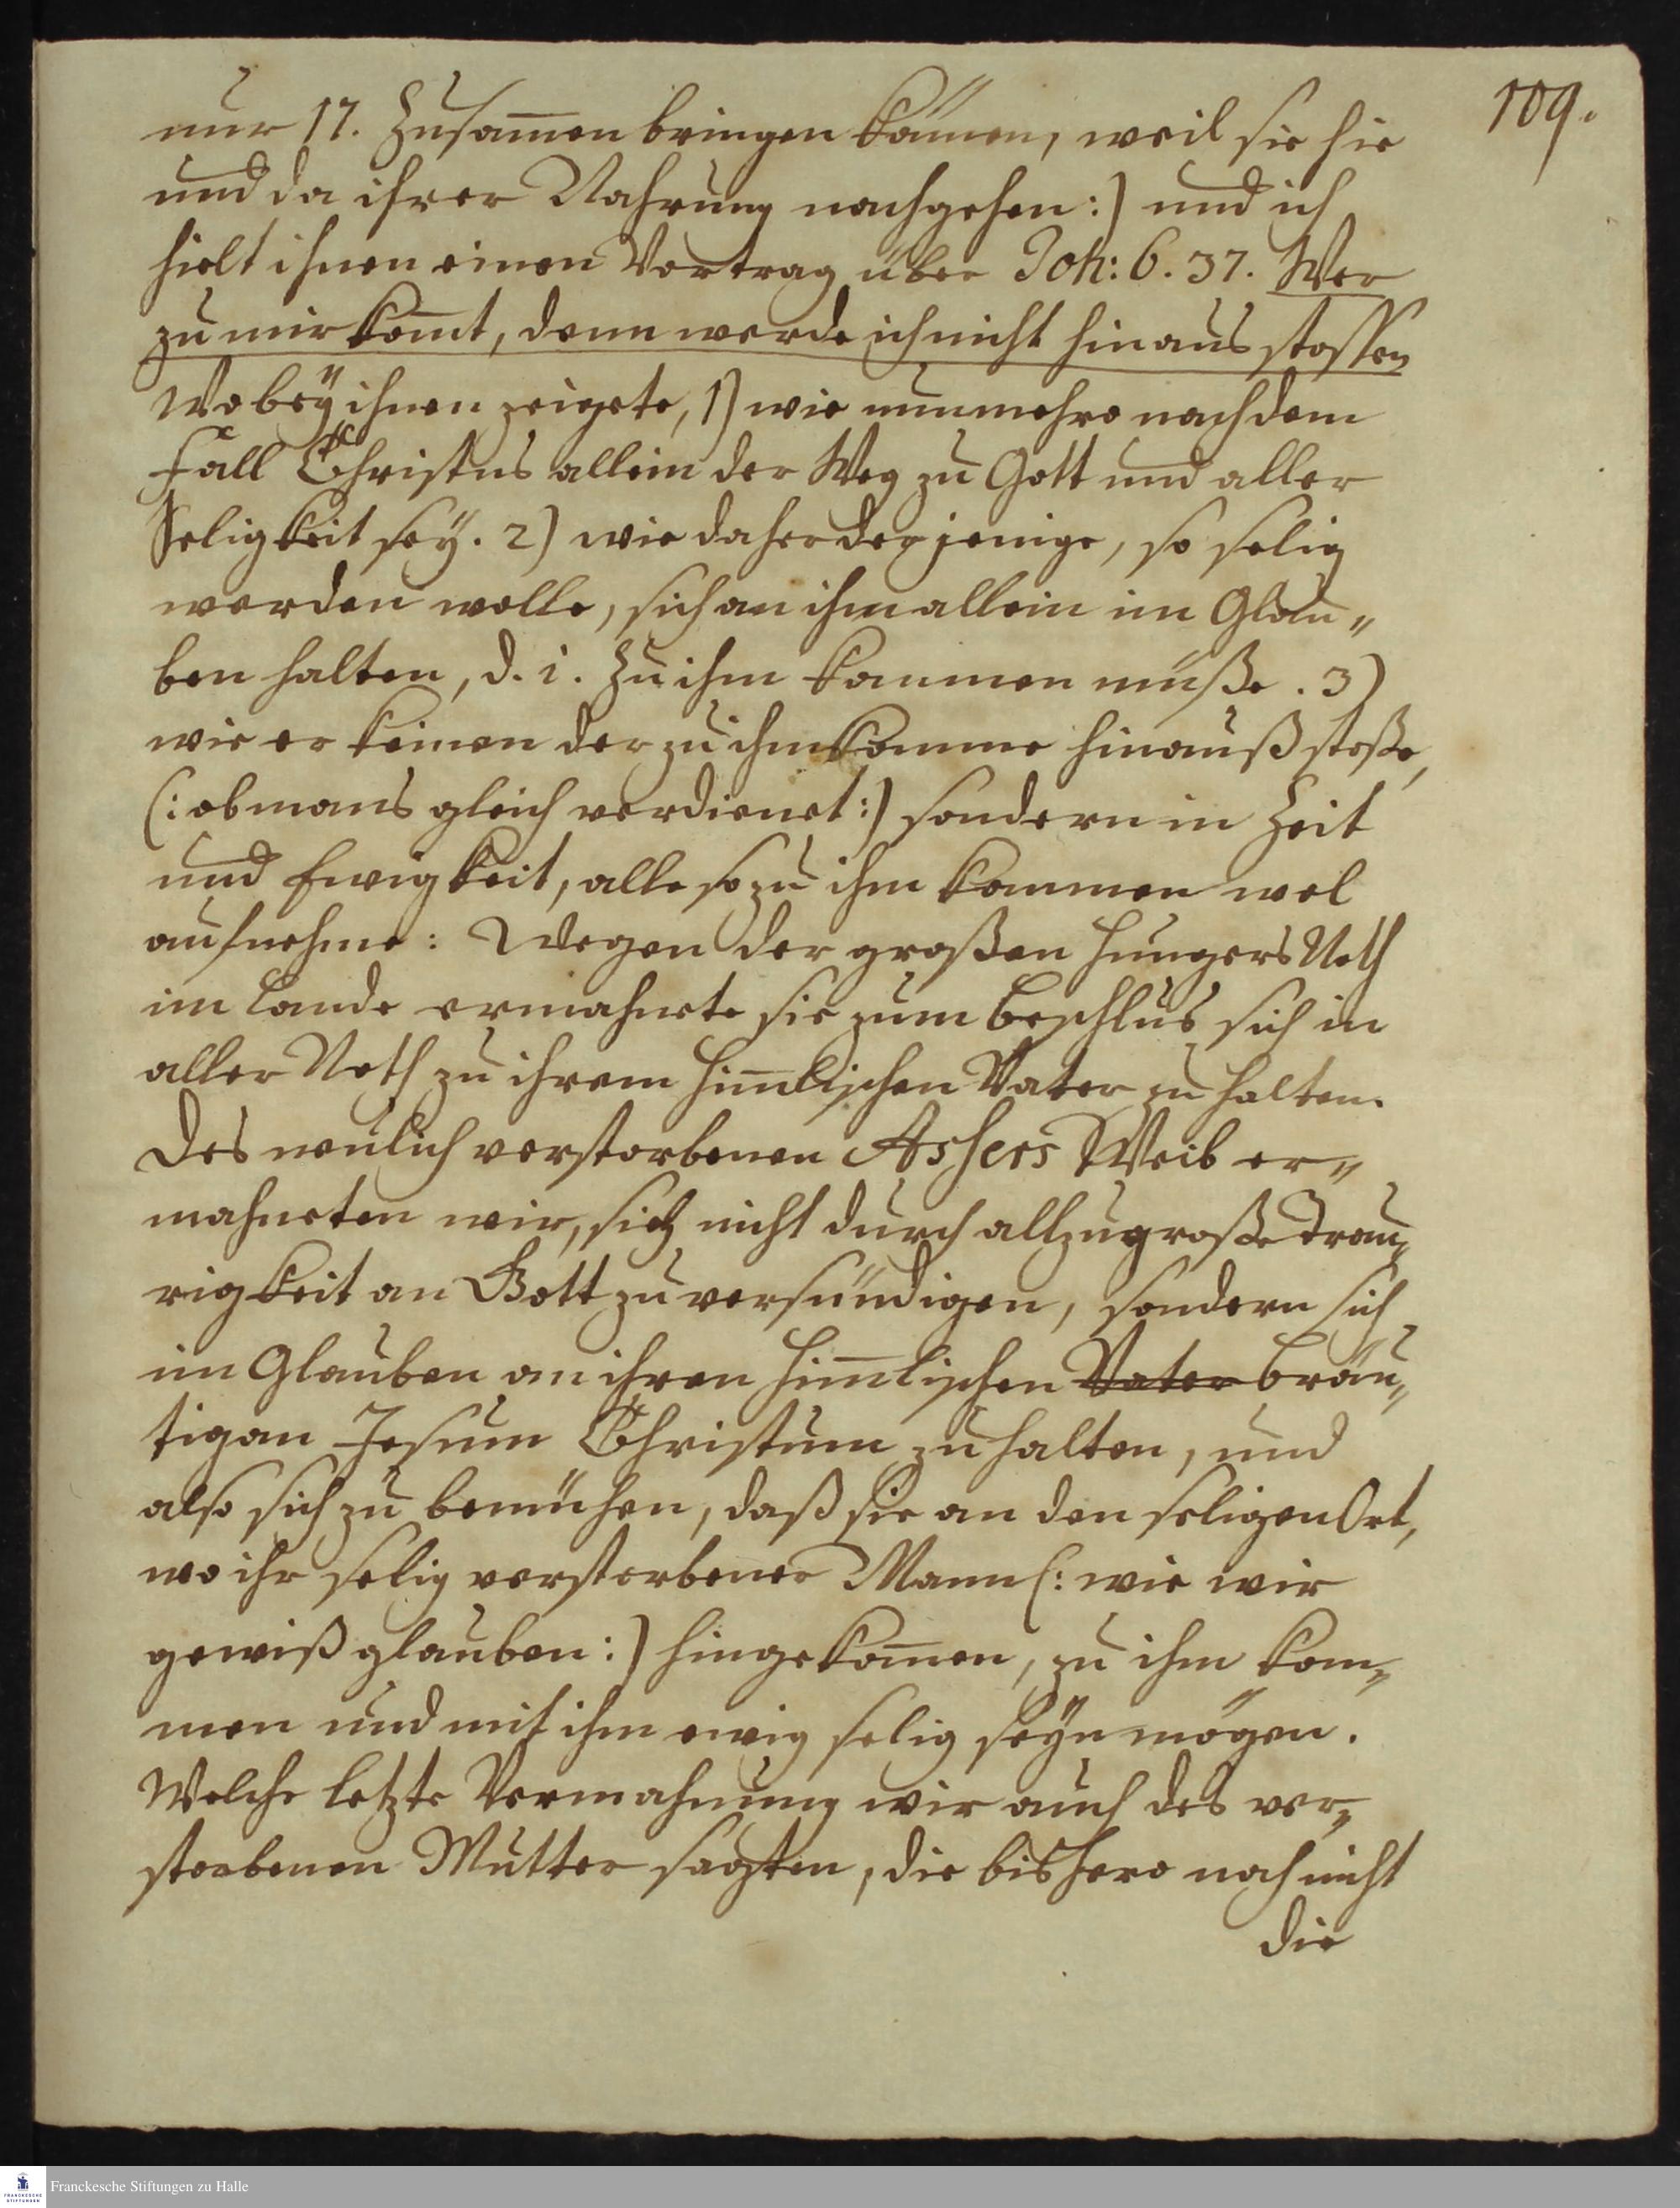 109.
nur 17. Zusam̄en bringen kön̄en, weil sie hie
und da ihrer Nahrung nachgehen:) und ich
hielt ihnen einen Vortrag über Joh: 6. 37. Wer
zu mir kom̄t, denn werde ich nicht hinaus stossen
Wobey ihnen zeigete, 1) wie nunmehro nach dem
Fall Christus allein der Weg zu Gott und aller
Seligkeit sey. 2) wie daher derjenige, so selig
werden wolle, sich an ihm allein im Glau„
ben halten, d. i. Zu ihm kommen müße. 3)
wie er keinen der zu ihm komme hinauß stoße,
(: ob mans gleich verdienet:) sondern in Zeit
und Ewigkeit, alle so zu ihm kommen wol
aufnehme: Wegen der großen Hungers Noth
im Lande ermahnete sie zum Beschlus sich in
aller Noth zu ihrem him̄lischen Vater zu halten.
Des neulich verstorbenen Ashers Weib er„
mahneten wir, sich nicht durch allzugroße Trau„
rigkeit an Gott zu versündigen, sondern sich
im Glauben an ihren him̄lischen Vater Bräu„
tigan Jesum Christum zu halten, und
also sich zu bemühen, daß sie an den seligen Ort,
wo ihr selig verstorbener Mann (: wie wir
gewiß glauben:) hingekom̄en, zu ihm kom„
men und mit ihm ewig selig seyn mögen.
Welche letzte Vermahnung wir auch des ver„
storbenen Mutter sagten, die bishero noch nicht
die
Franckesche Stiftungen zu Halle
FRANCKESCHE
STIFTUNGEN